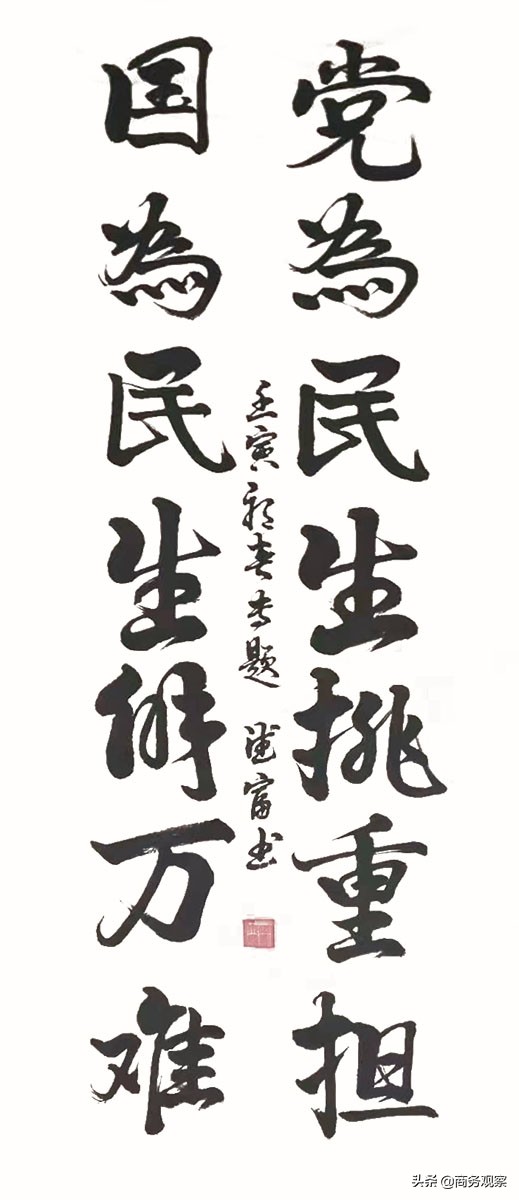 党為民生挑重担
国為民生解万难
壬寅初春专题 富书
头条 @商务观察